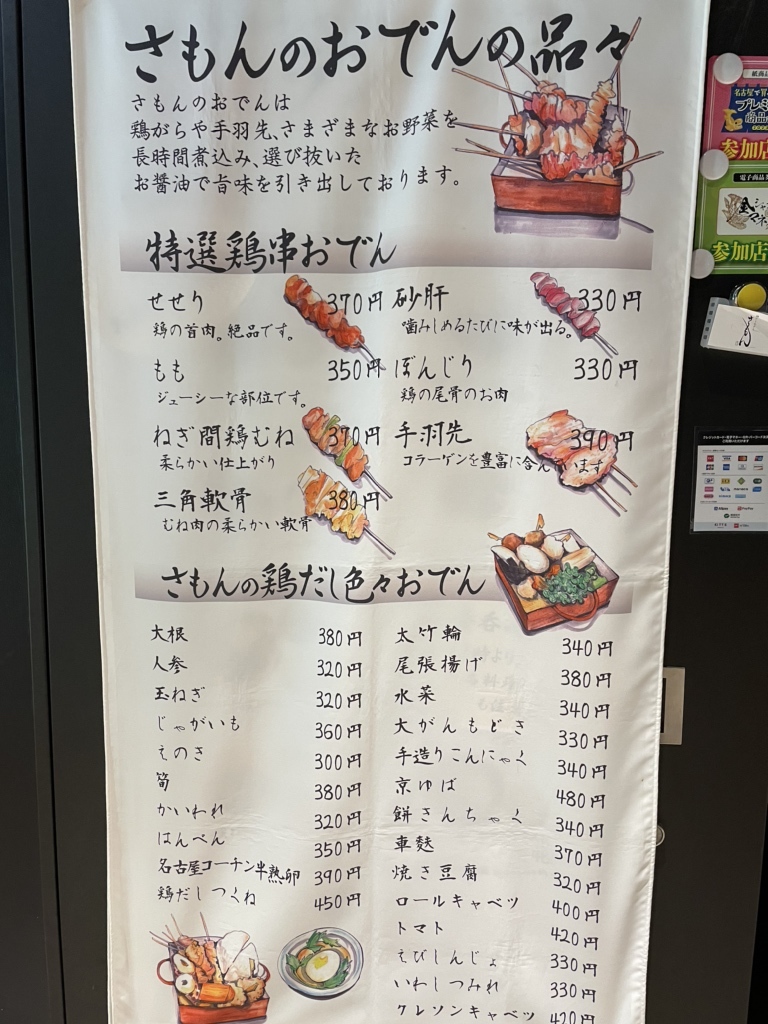 さもんのおでんの品々
さもんのおでんは
鶏がらや手羽先、さまざまなお野菜を
長時間煮込み、選び抜いた
お醤油で旨味を引き出しております。
特選鶏串おでん
せせり 370円
鶏の首肉。絶品です。
砂肝 330円
噛みしめるたびに味が出る。
もも 350円
ジューシーな部位です。
ぼんじり 330円
鶏の尾骨のお肉
ねぎ間鶏むね 370円
柔らかい仕上がり
手羽先 390円
コラーゲンを豊富に含んでいます
三角軟骨 380円
むね肉の柔らかい軟骨
さもんの鶏だし色々おでん
大根 380円
人参 320円
玉ねぎ 320円
じゃがいも 360円
えのき 300円
筍 380円
かいわれ 320円
はんぺん 350円
名古屋コーチン半熟卵 390円
鶏だしつくね 450円
太竹輪 340円
尾張揚げ 380円
水菜 340円
大がんもどき 330円
手造りこんにゃく 340円
京ゆば 480円
餅きんちゃく 340円
車麩 370円
焼き豆腐 320円
ロールキャベツ 400円
トマト 420円
えびしんじょ 330円
いわしつみれ 330円
クレソンキャベツ 420円
名古屋で買
プレミ
商品
参加店
電子商品
参加店